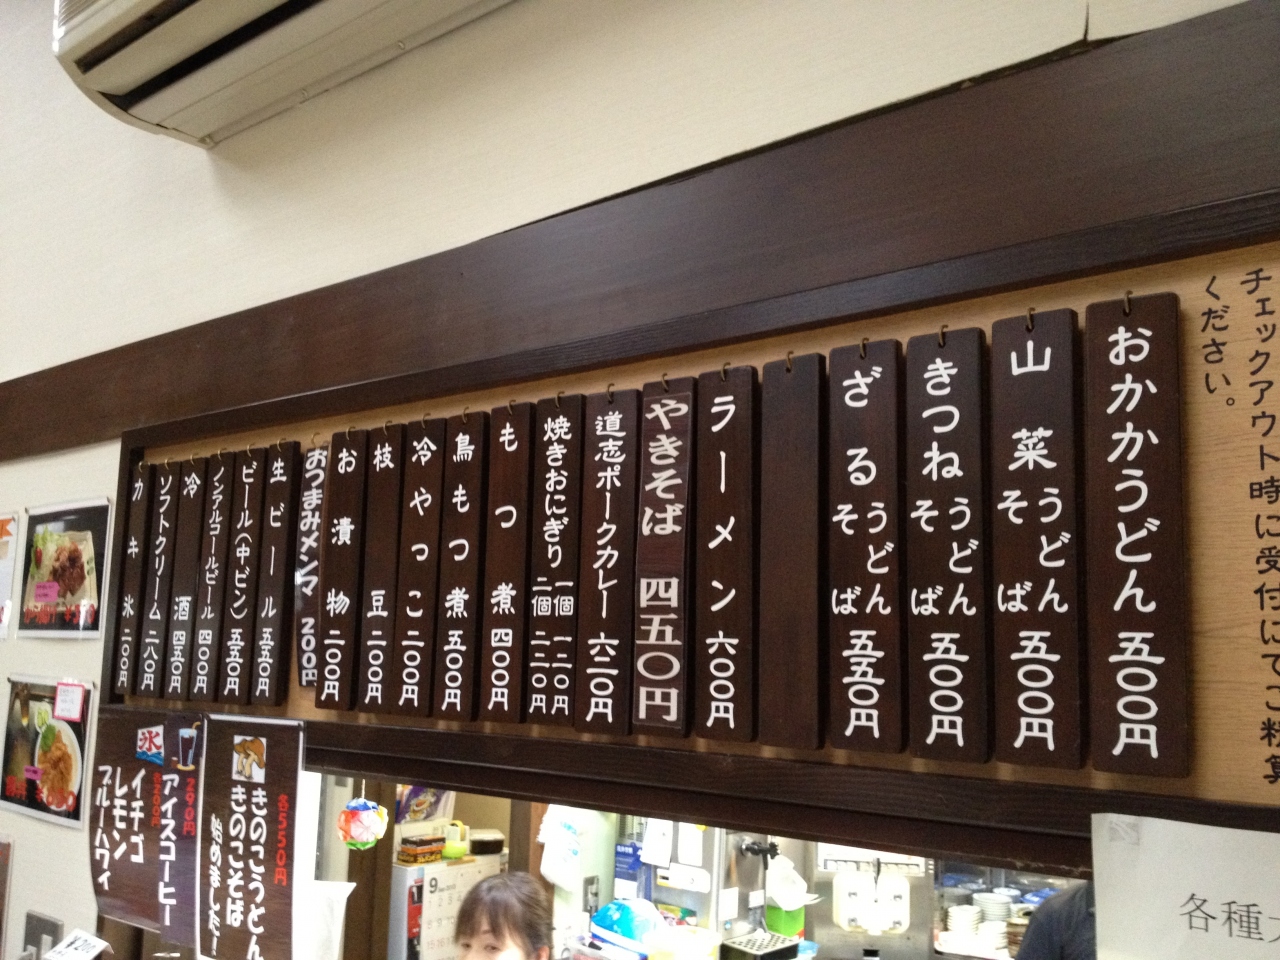 チェックアウト時に受付にてご精算
ください。
おかかうどん 五〇〇円
山菜 うどん そば 五〇〇円
きつね うどん そば 五〇〇円
ざる うどん そば 五五〇円
ラーメン 六〇〇円
やきそば 四五〇円
道志ポークカレー 六二〇円
焼きおにぎり 一個 一二〇円
二個 二二〇円
もつ煮 四〇〇円
鳥もつ煮 五〇〇円
冷やっこ 二〇〇円
枝豆 二〇〇円
お漬物 二〇〇円
おつまみメンマ 200円
生ビール 五五〇円
ビール(中ビン) 五五〇円
ノンアルコールビール 四〇〇円
冷酒 四五〇円
ソフトクリーム 二八〇円
カキ氷 二〇〇円
$550円
きのこうどん
きのこそば
始めました!
290円
アイスコーヒー
氷
イチゴ
レモン
ブルーハワイ
各種
9